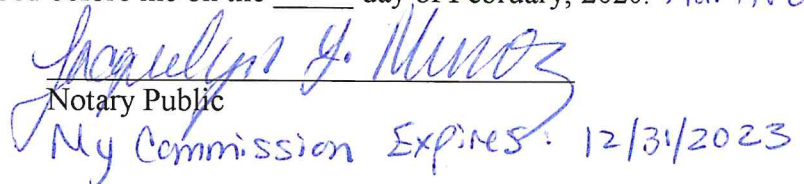 before me on the _____ day of February, 2020.
Jacquelyn Y. Munoz
Notary Public
My Commission Expires: 12/31/2023